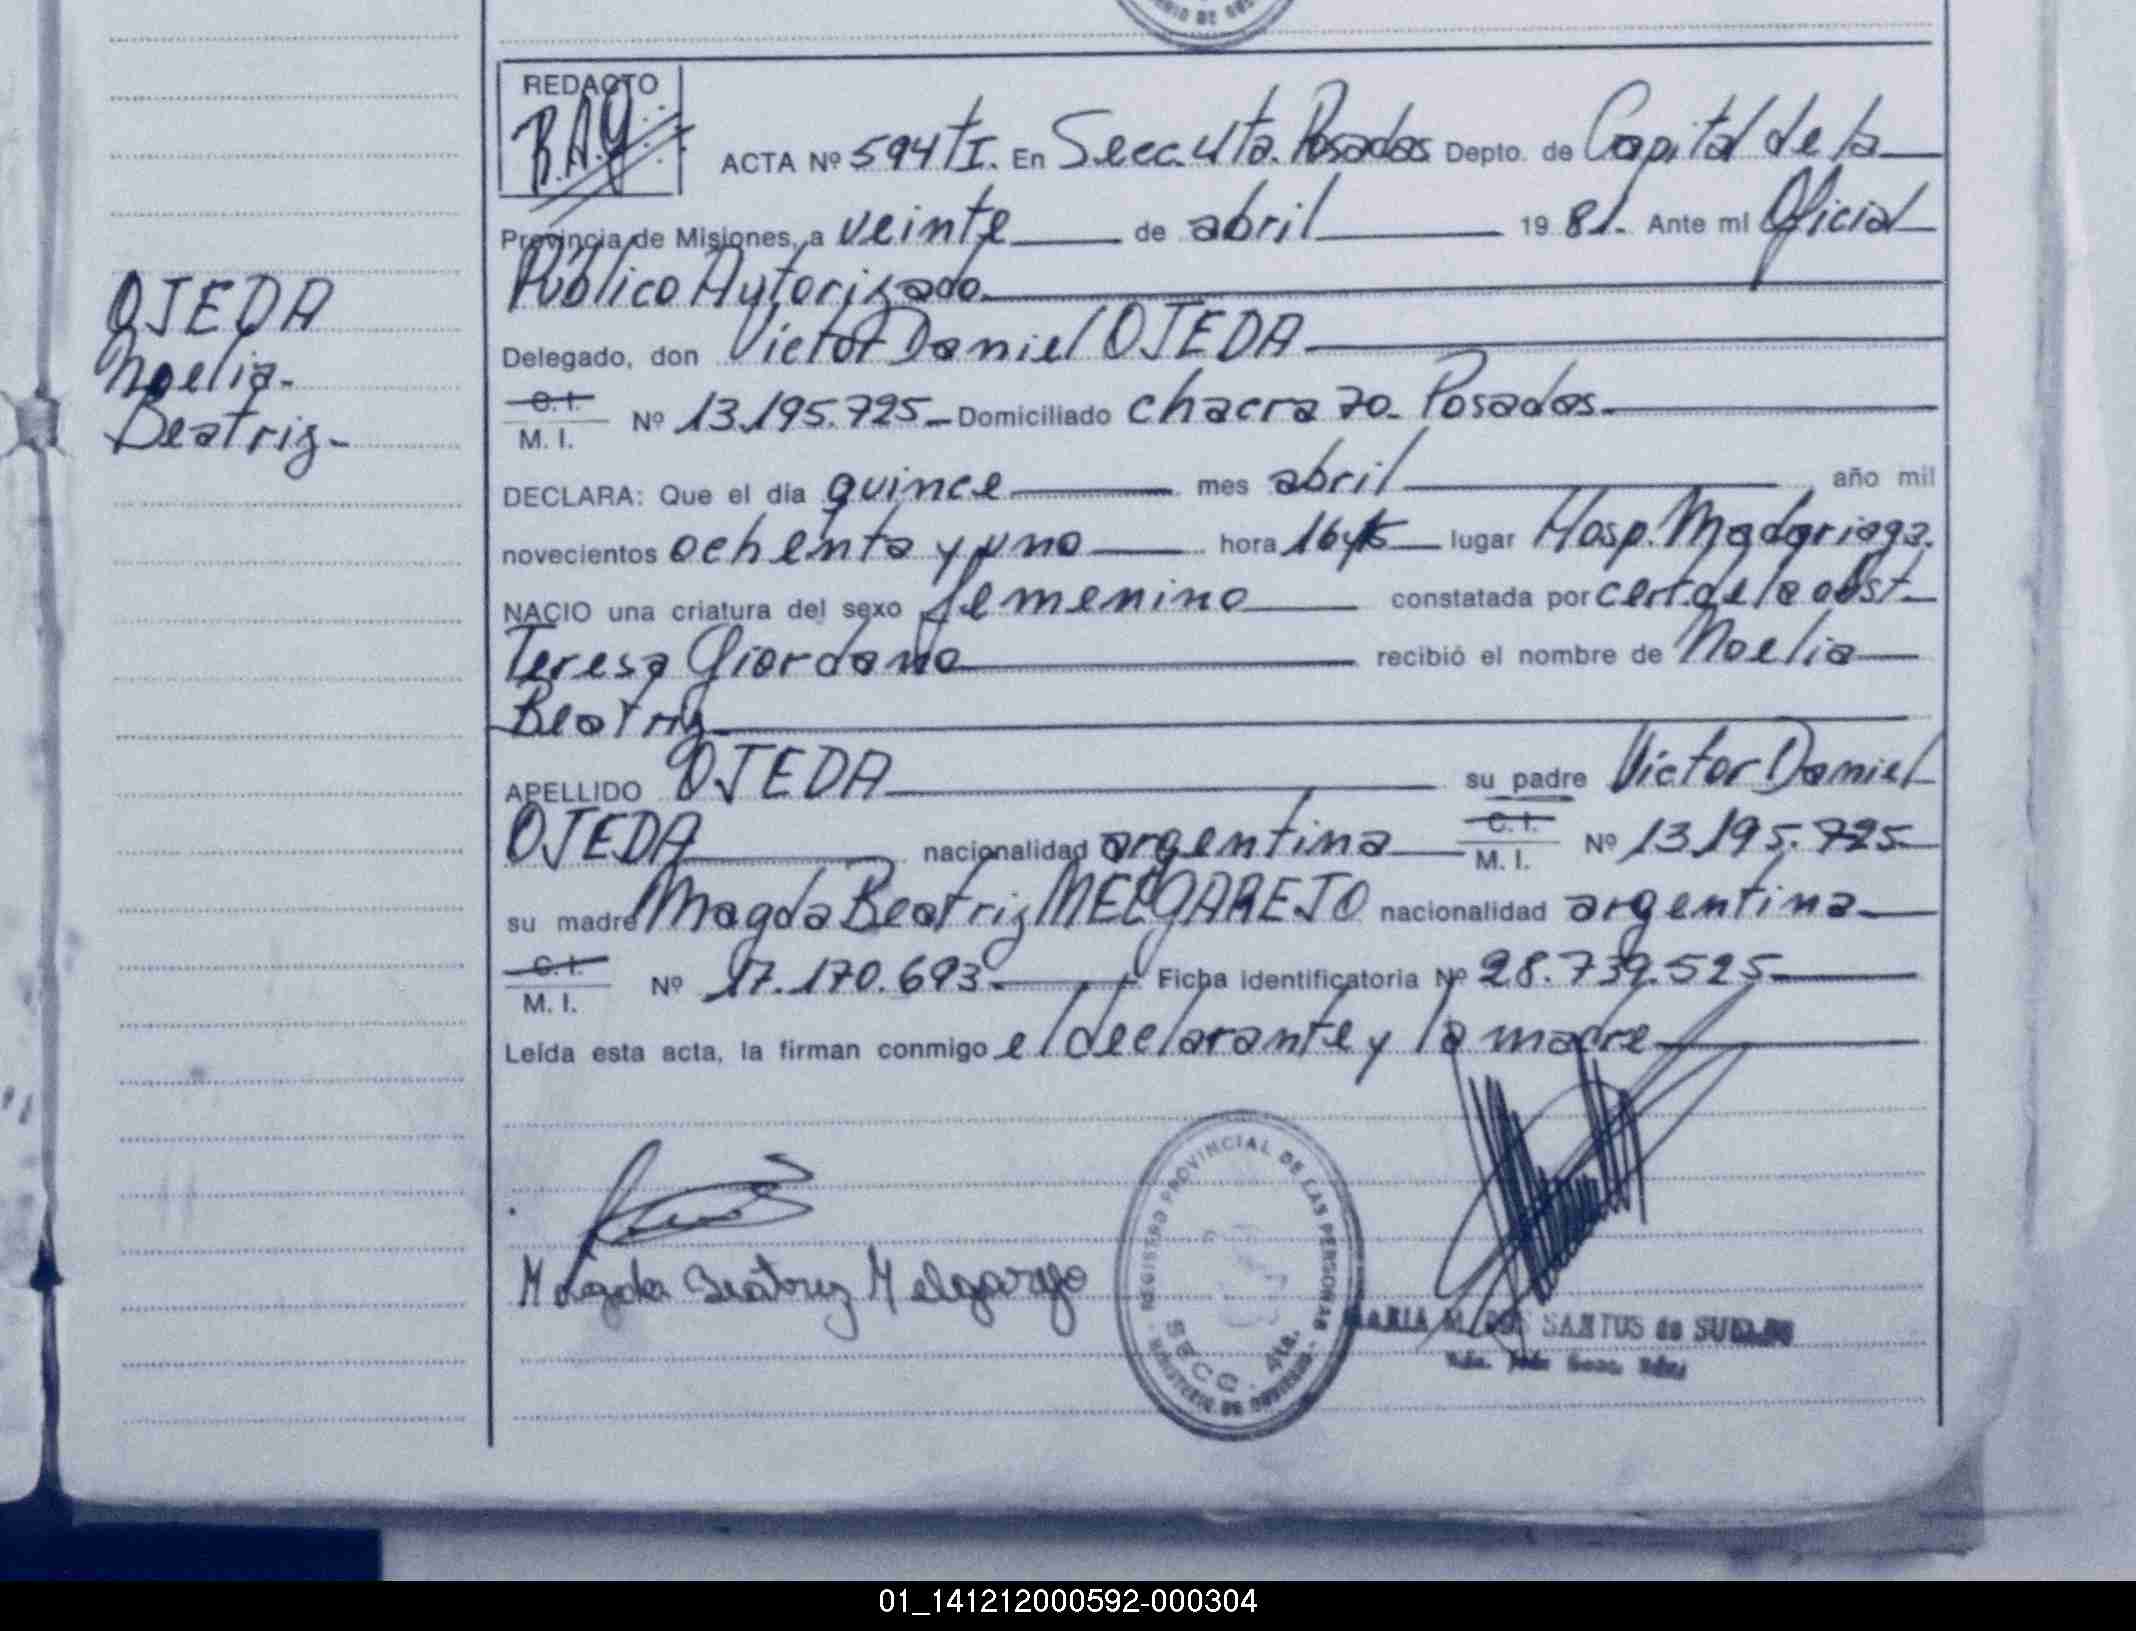 RIO DE GOB
REDACTO
B.A.G
ACTA Nº 594 TI. En Secc. 4ta. Posadas Depto. de Capital de la
Provincia de Misiones, a veinte de abril 1981. Ante mí Oficial
Público Autorizado
Delegado, don Victor Daniel OJEDA
C. I.
M. I. Nº 13.195.725 Domiciliado chacra 70. Posadas
DECLARA: Que el día quince mes abril año mil
novecientos ochenta y uno hora lugar Hosp. Madariaga.
NACIO una criatura del sexo femenino constatada por cert. de la obst
Teresa Giordano recibió el nombre de Noelia
Beatriz
APELLIDO OJEDA su padre Victor Daniel
OJEDA nacionalidad argentina C. I. M. I. Nº 13.195.725
su madre Magda Beatriz MELGAREJO nacionalidad argentina
C. I.
M. I. Nº 17.170.693 Ficha identificatoria Nº 28.739.525
Leída esta acta, la firman conmigo el declarante y la madre
OJEDA
Noelia
Beatriz
Magda Beatriz Melgarejo
REGISTRO PROVINCIAL DE LAS PERSONAS
SECC. 4ta.
MINISTERIO DE GOBIERNO
MARIA M. DOS SANTOS de
01_141212000592-000304